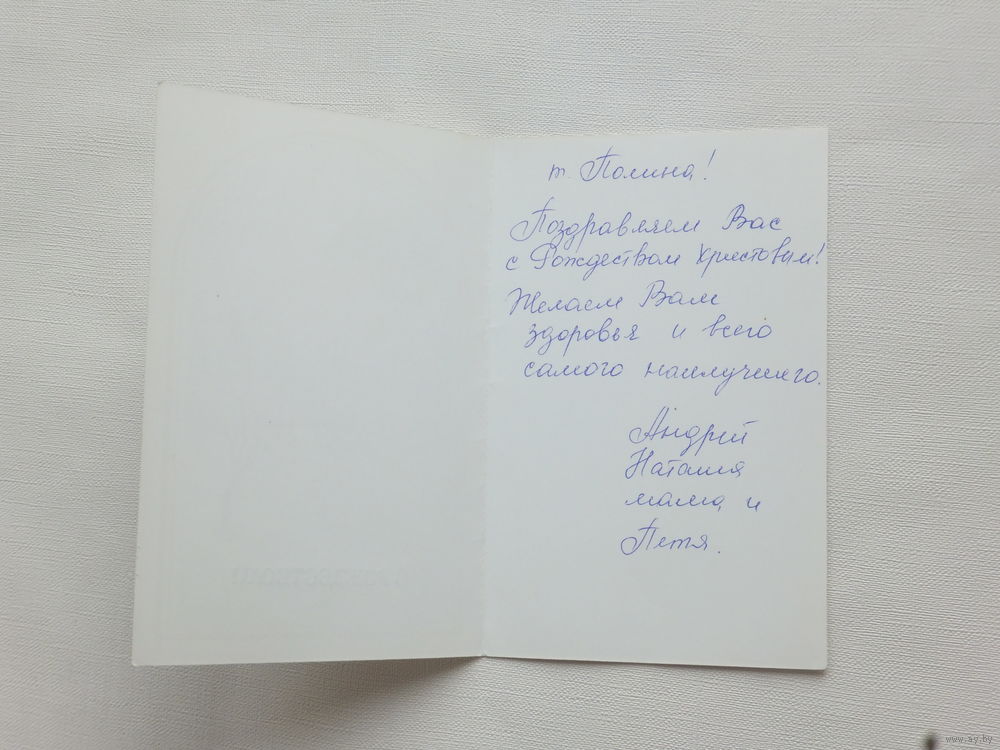 т. Полина!
Поздравляем Вас
с Рождеством Христовым!
Желаем Вам
здоровья и всего
самого наилучшего.
Андрей
Наташа
мама и
Петя.
www.ay.by